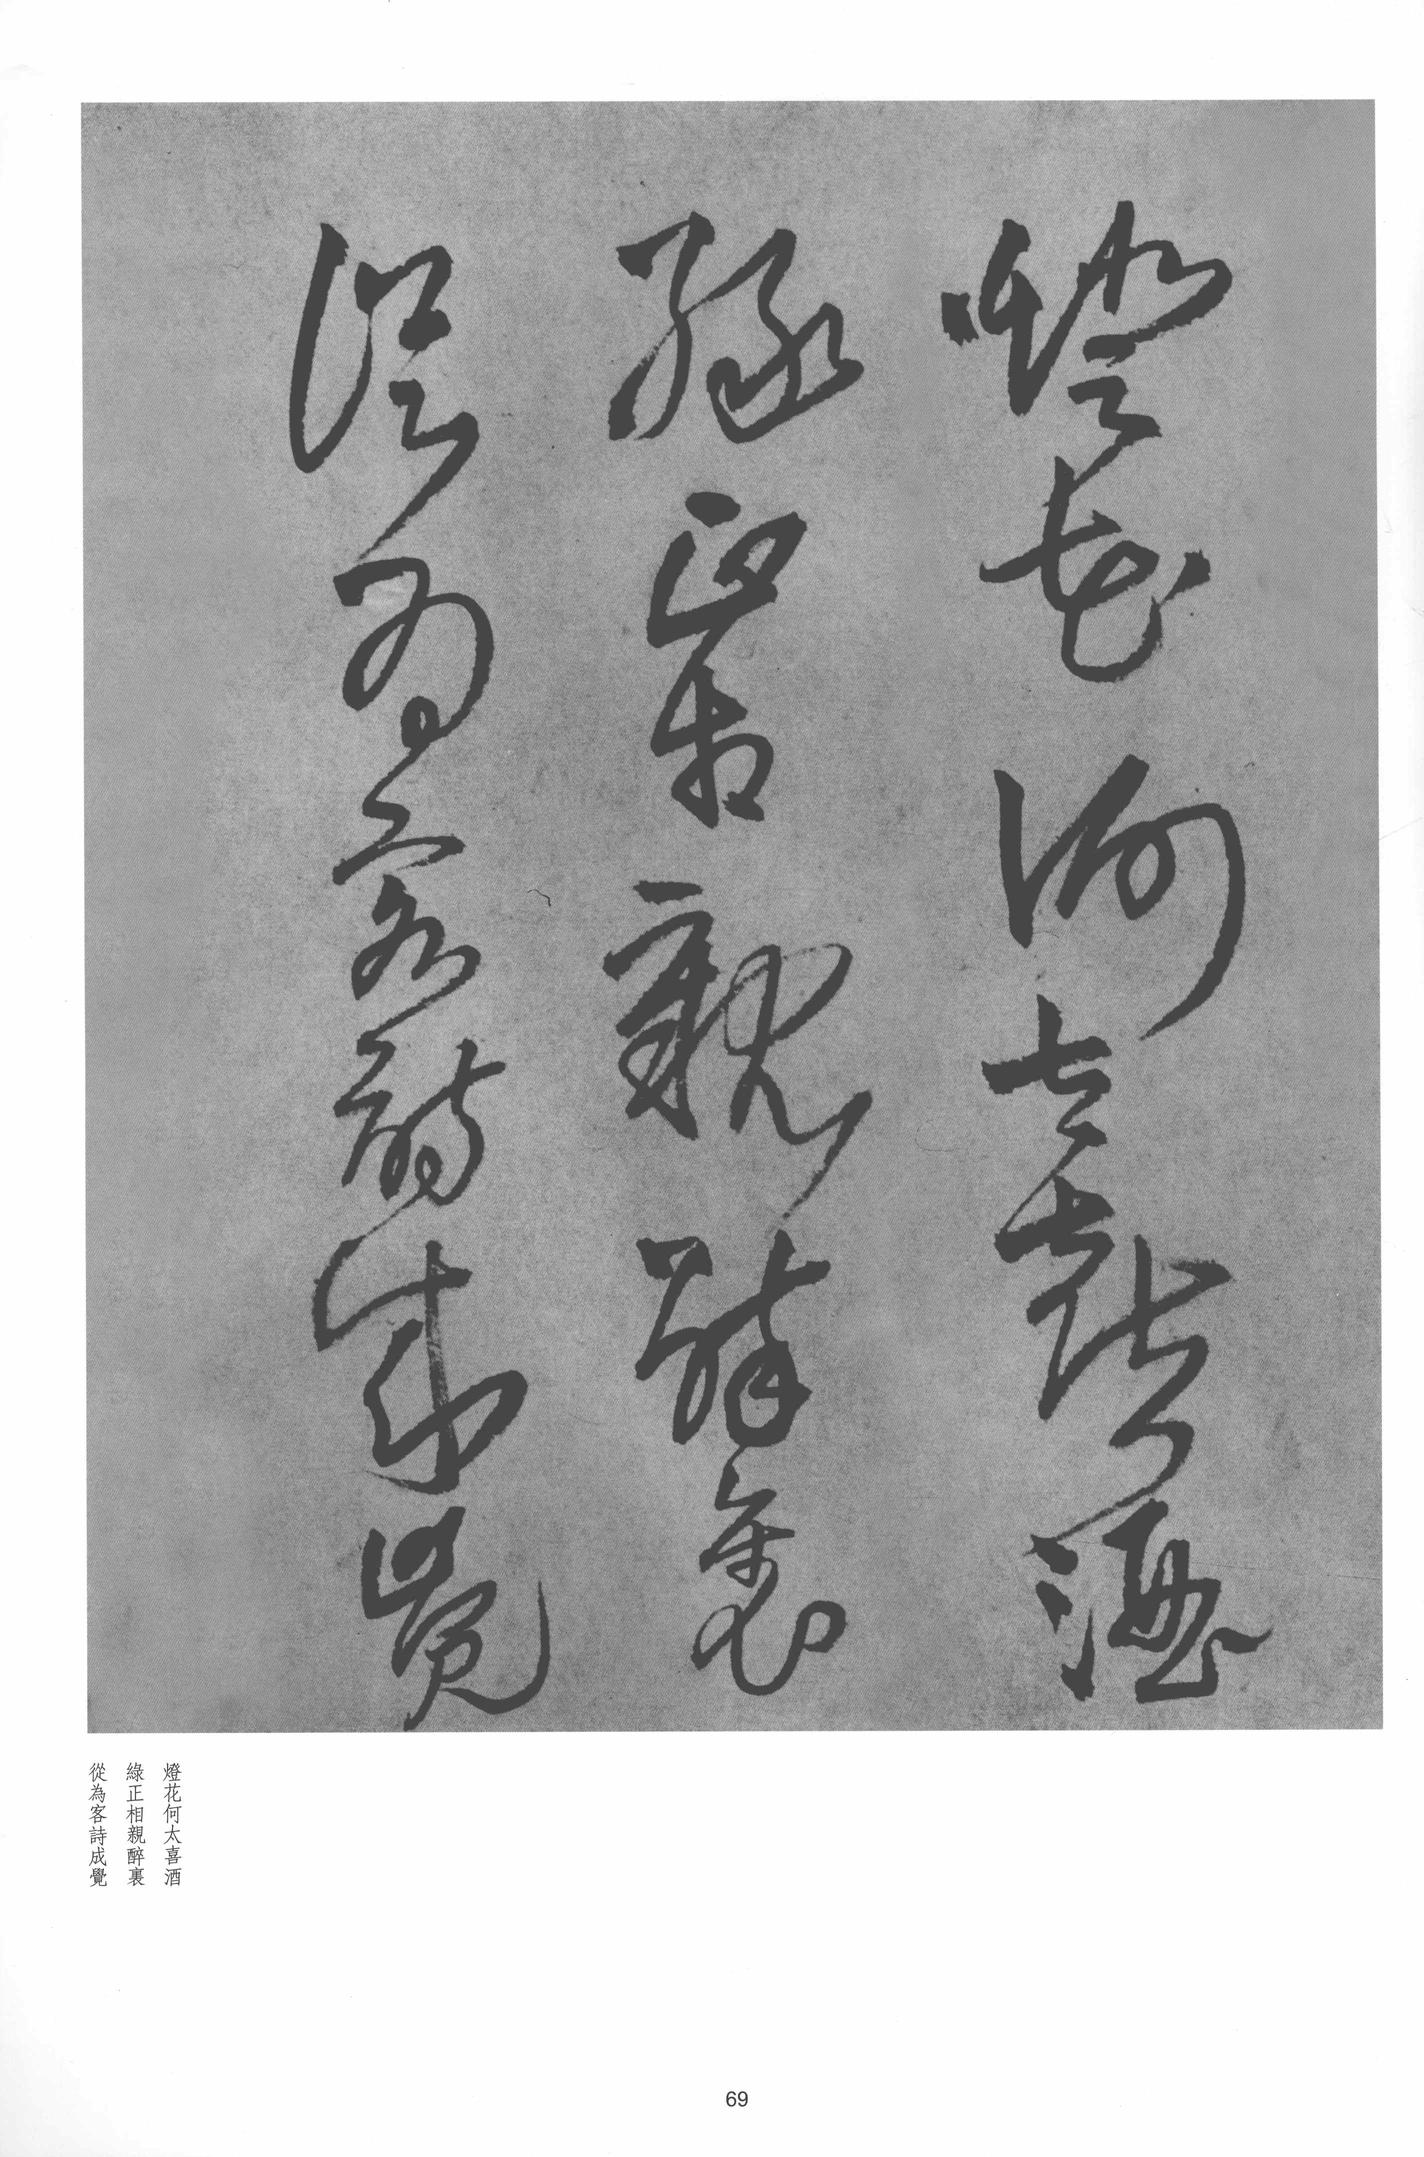 燈花何太喜酒
綠正相親醉裏
從為客詩成覺
燈花何太喜酒
綠正相親醉裏
從為客詩成覺
69